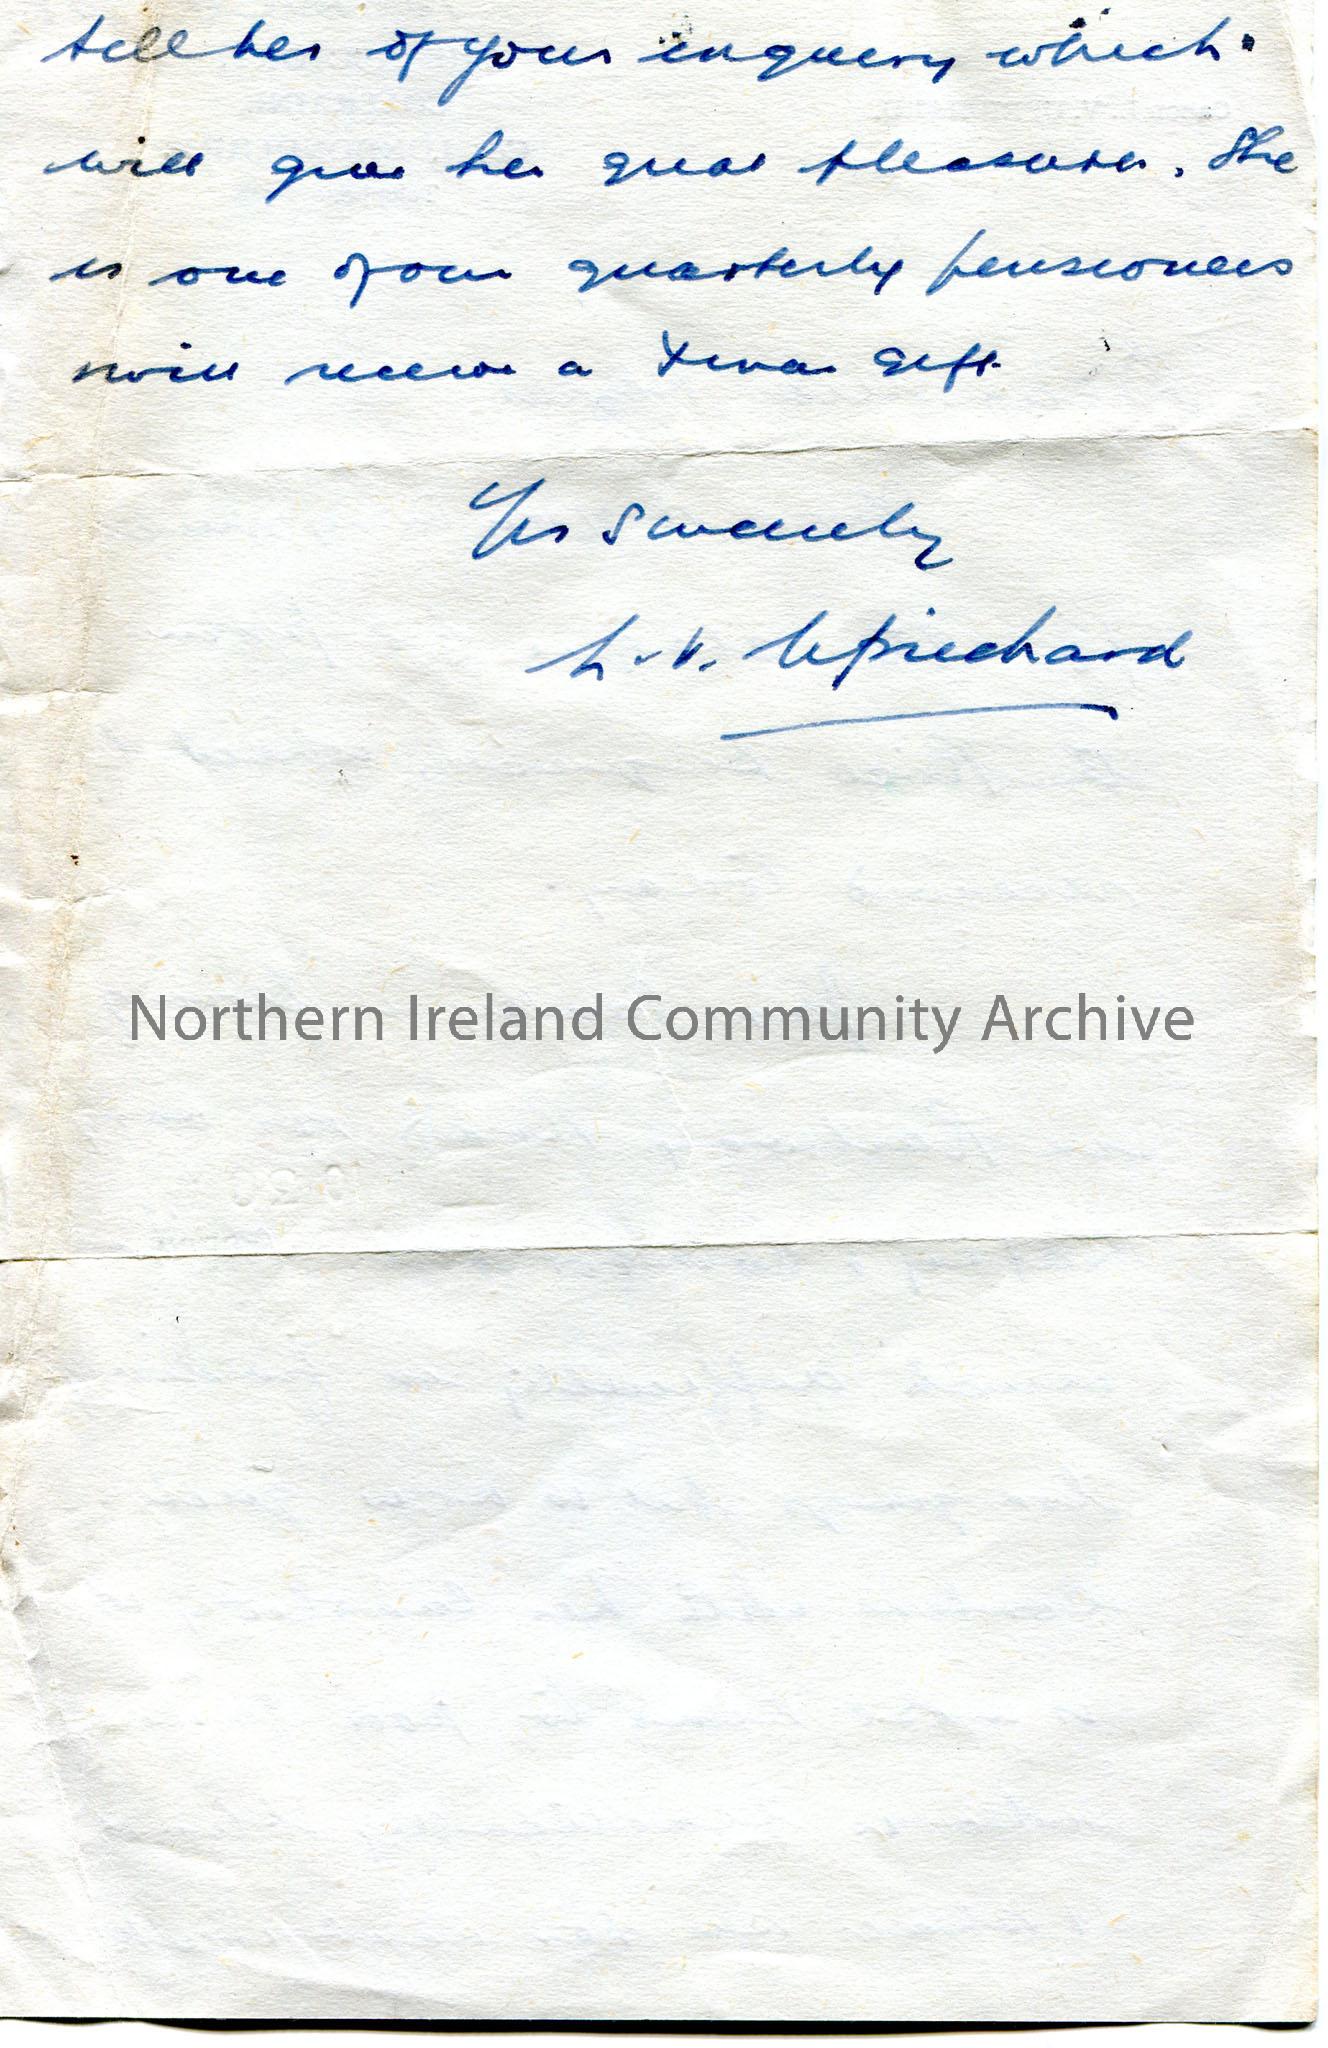 tell her of your enquiry which
will give her great pleasure. She
is one of our quarterly pensioners
& will receive a Xmas gift.
Yrs Sincerely
L. V. Uprichard
Northern Ireland Community Archive